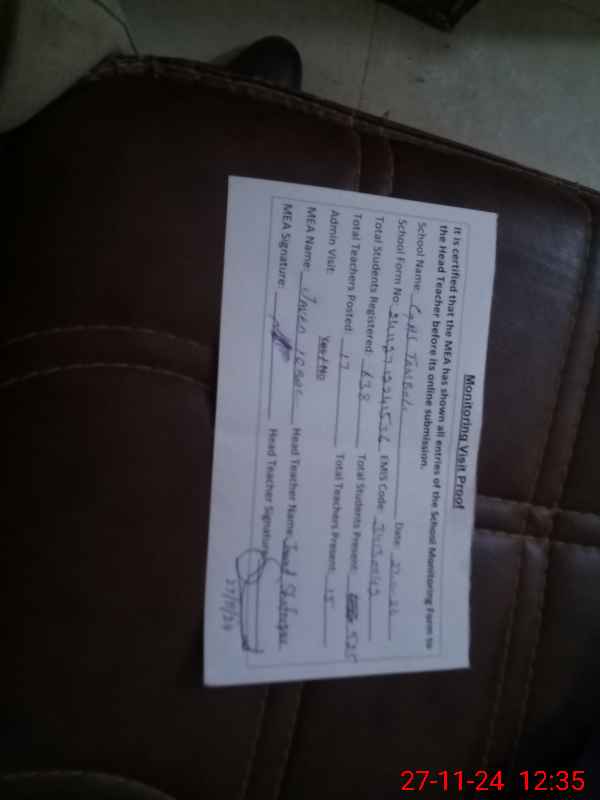 Monitoring Visit Proof
It is certified that the MEA has shown all entries of the School Monitoring Form to
the Head Teacher before its online submission.
School Name: Date:
School Form No: EMIS Code:
Total Students Registered: 638 Total Students Present: 525
Total Teachers Posted: 17 Total Teachers Present: 15
Admin Visit: Yes / No
MEA Name: Head Teacher Name:
MEA Signature: Head Teacher Signature:
27-11-24 12:35